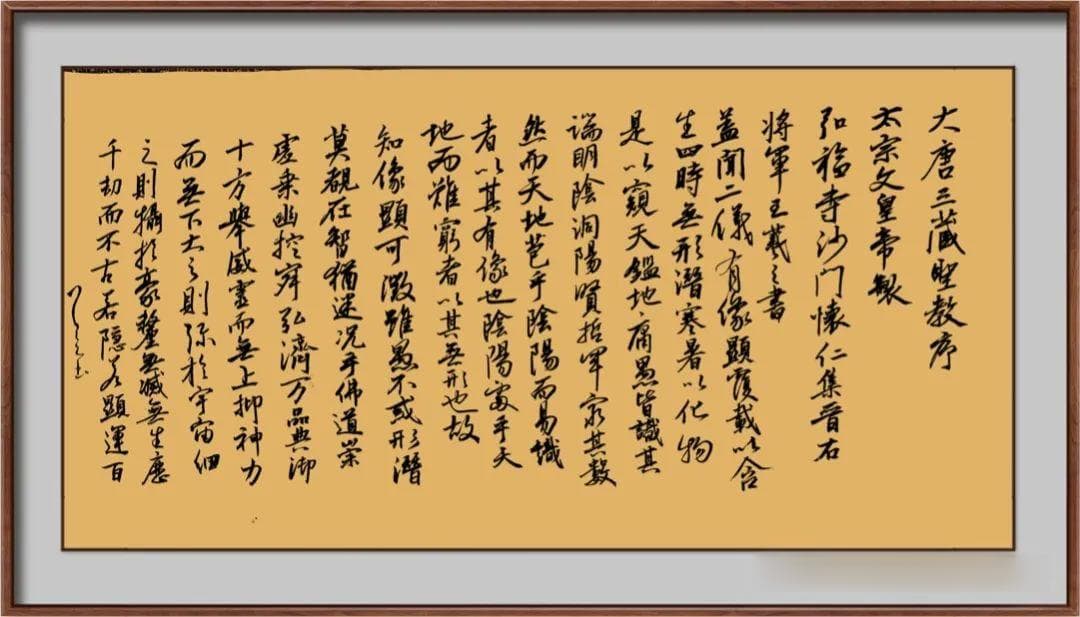 大唐三藏聖教序
太宗文皇帝製
弘福寺沙门懷仁集晉右
將軍王羲之書
蓋聞二儀有像顯覆載以含
生四時無形潛寒暑以化物
是以窺天鑑地庸愚皆識其
端明陰洞陽賢哲罕窮其數
然而天地苞乎陰陽而易識
者以其有像也陰陽處乎天
地而難窮者以其無形也故
知像顯可徵雖愚不或形潛
莫覩在智猶迷況乎佛道崇
虛乘幽控寂弘濟万品典御
十方舉威靈而無上抑神力
而無下大之則弥於宇宙細
之則攝於豪釐無滅無生歷
千劫而不古若隱若顯運百